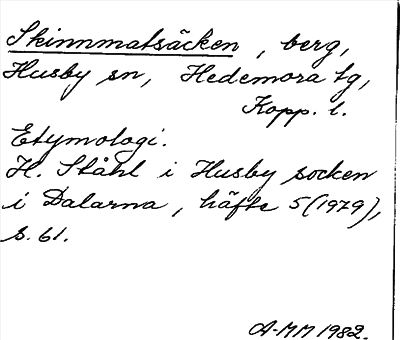 Skinnmatsäcken, berg,
Husby sn, Hedemora tg,
Kopp. l.
Etymologi.
H. Ståhl i Husby socken
i Dalarna, häfte 5 (1979),
s. 61.
A-MM 1982.